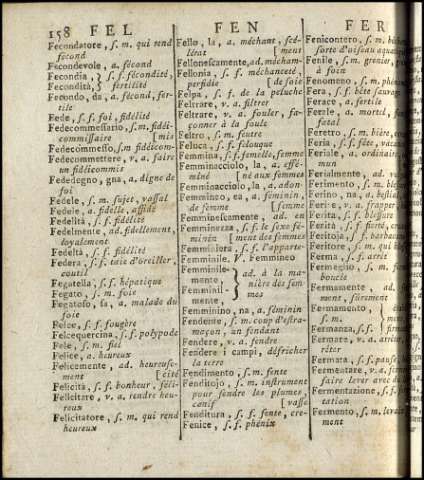 158 FEL
FEN
FER
Fecondatore, s. m. qui rend
fécond
Fecondevole, a. fécond
Fecondia, } s. f. fécondité,
Fecondità, } fertilité
Fecondo, da, a. fécond, fer-
tile
Fede, s. f. foi, fidélité
Fedecommessario, s. m. fidéi-
commissaire
Fedecommesso, s. m. fidéicom-
Fedecommettere, v. a. faire
un fidéicommis
Fededegno, gna, a. digne de
foi
Fedele, s. m. sujet, vassal
Fedele, a. fidelle, affidé
Fedeltà, s. f. fidélité
Fedelmente, ad. fidellement,
loyalement
Fedeltà, s. f. fidélité
Federa, s. f. taie d'oreiller,
coutil
Fegatella, s. f. hépatique
Fegato, s. m. foie
Fegatoso, sa, a. malade du
foie
Felce, s. f. fougère
Felcequercina, s. f. polypode
Fele, s. m. fiel
Felice, a. heureux
Felicemente, ad. heureuse-
ment [cité
Felicità, s. f. bonheur, féli-
Felicitare, v. a. rendre heu-
reux
Felicitatore, s. m. qui rend
heureux
Fello, la, a. méchant, scé-
lérat [ment
Fellonescamente, ad. mécham-
Fellonia, s. f. méchanceté,
perfidie [de soie
Felpa, s. f. de la peluche
Feltrare, v. a. filtrer
Feltrare, v. a. fouler, fa-
çonner à la foule
Feltro, s. m. feutre
Feluca, s. f. felouque
Femmina, s. f. femelle, femme
Femminacciolo, la, a. effé-
miné [né aux femmes
Femminacciolo, la, a. adon-
Femmineo, ea, a. féminin,
de femme [femme
Femminescamente, ad. en
Femminezza, s. f. le sexe fé-
minin [ment des femmes
Femminiera, s. f. l'apparte-
Femminile, V. Femmineo
Femminile-
mente,
Femminil-
mente,
} ad. à la ma-
nière des fem-
mes
Femminino, na, a. féminin
Fendente, s. m. coup d'estra-
maçon, un fendant
Fendere, v. a. fendre
Fendere i campi, défricher
la terre
Fendimento, s. m. fente
Fenditojo, s. m. instrument
pour fendre les plumes,
canif [vasse
Fenditura, s. f. fente, cre-
Fenice, s. f. phénix
Fenicontero, s. m.
sorte d'oiseau aquatique
Fenile, s. m. grenier,
à foin
Fenomeno, s. m. phénom
Fera, s. f. bête sauvage
Ferace, a. fertile
Ferale, a. mortel,
fatal
Feretro, s. m. bière,
Feria, s. f. fête,
Feriale, a. ordinaire,
mun
Ferialmente, ad.
Ferimento, s. m.
Ferino, na, a. bestial
Ferire, v. a. frapper,
Ferita, s. f. blessure
Ferità, s. f. fierté,
Feritoja, s. f.
Feritore, s. m. qui
Ferma, s. f. arrêt
Fermaglio, s. m.
boucle
Fermamente, ad.
ment, sûrement
Fermamento,
s. m.
Fermanza, s. f.
Fermare, v. a. arrêter,
rêter
Fermata, s. f. pause,
Fermentare, v. a.
faire lever avec du
Fermentazione, s. f.
tation
Fermento, s. m. levain
ment